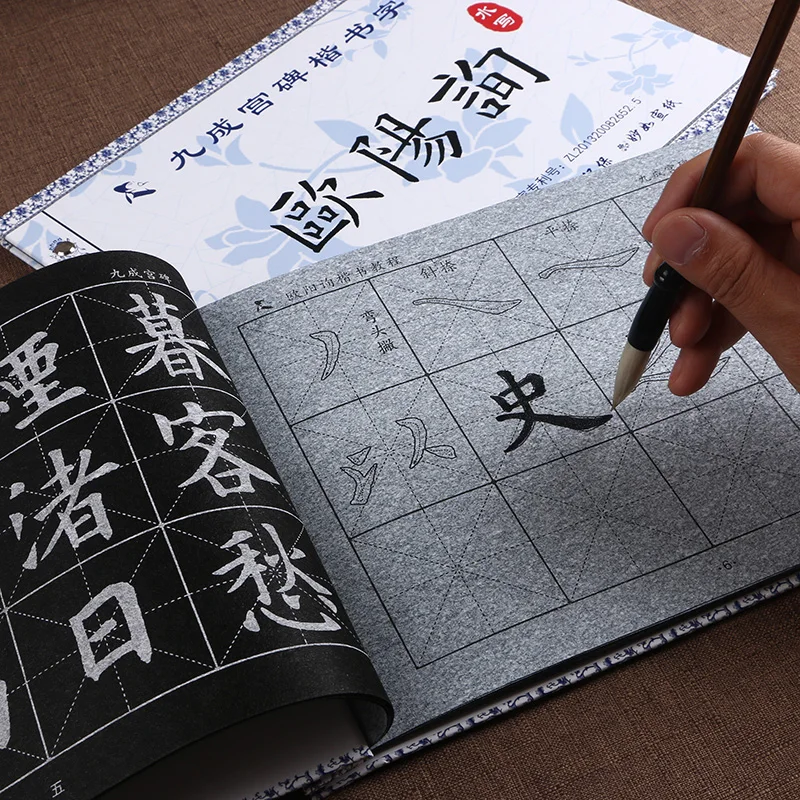 水写
九成宫碑楷书字
歐陽詢
专利号: ZL201320082652.5
妙如宣纸
九成宫碑
暮
客
愁
煙
渚
日
五
欧阳询楷书教程
弯头撇
斜捺
平捺
史
-6-